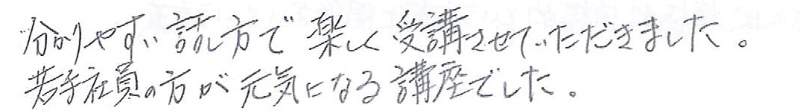 分かりやすい話し方で楽しく受講させていただきました。
若手社員の方が元気になる講座でした。